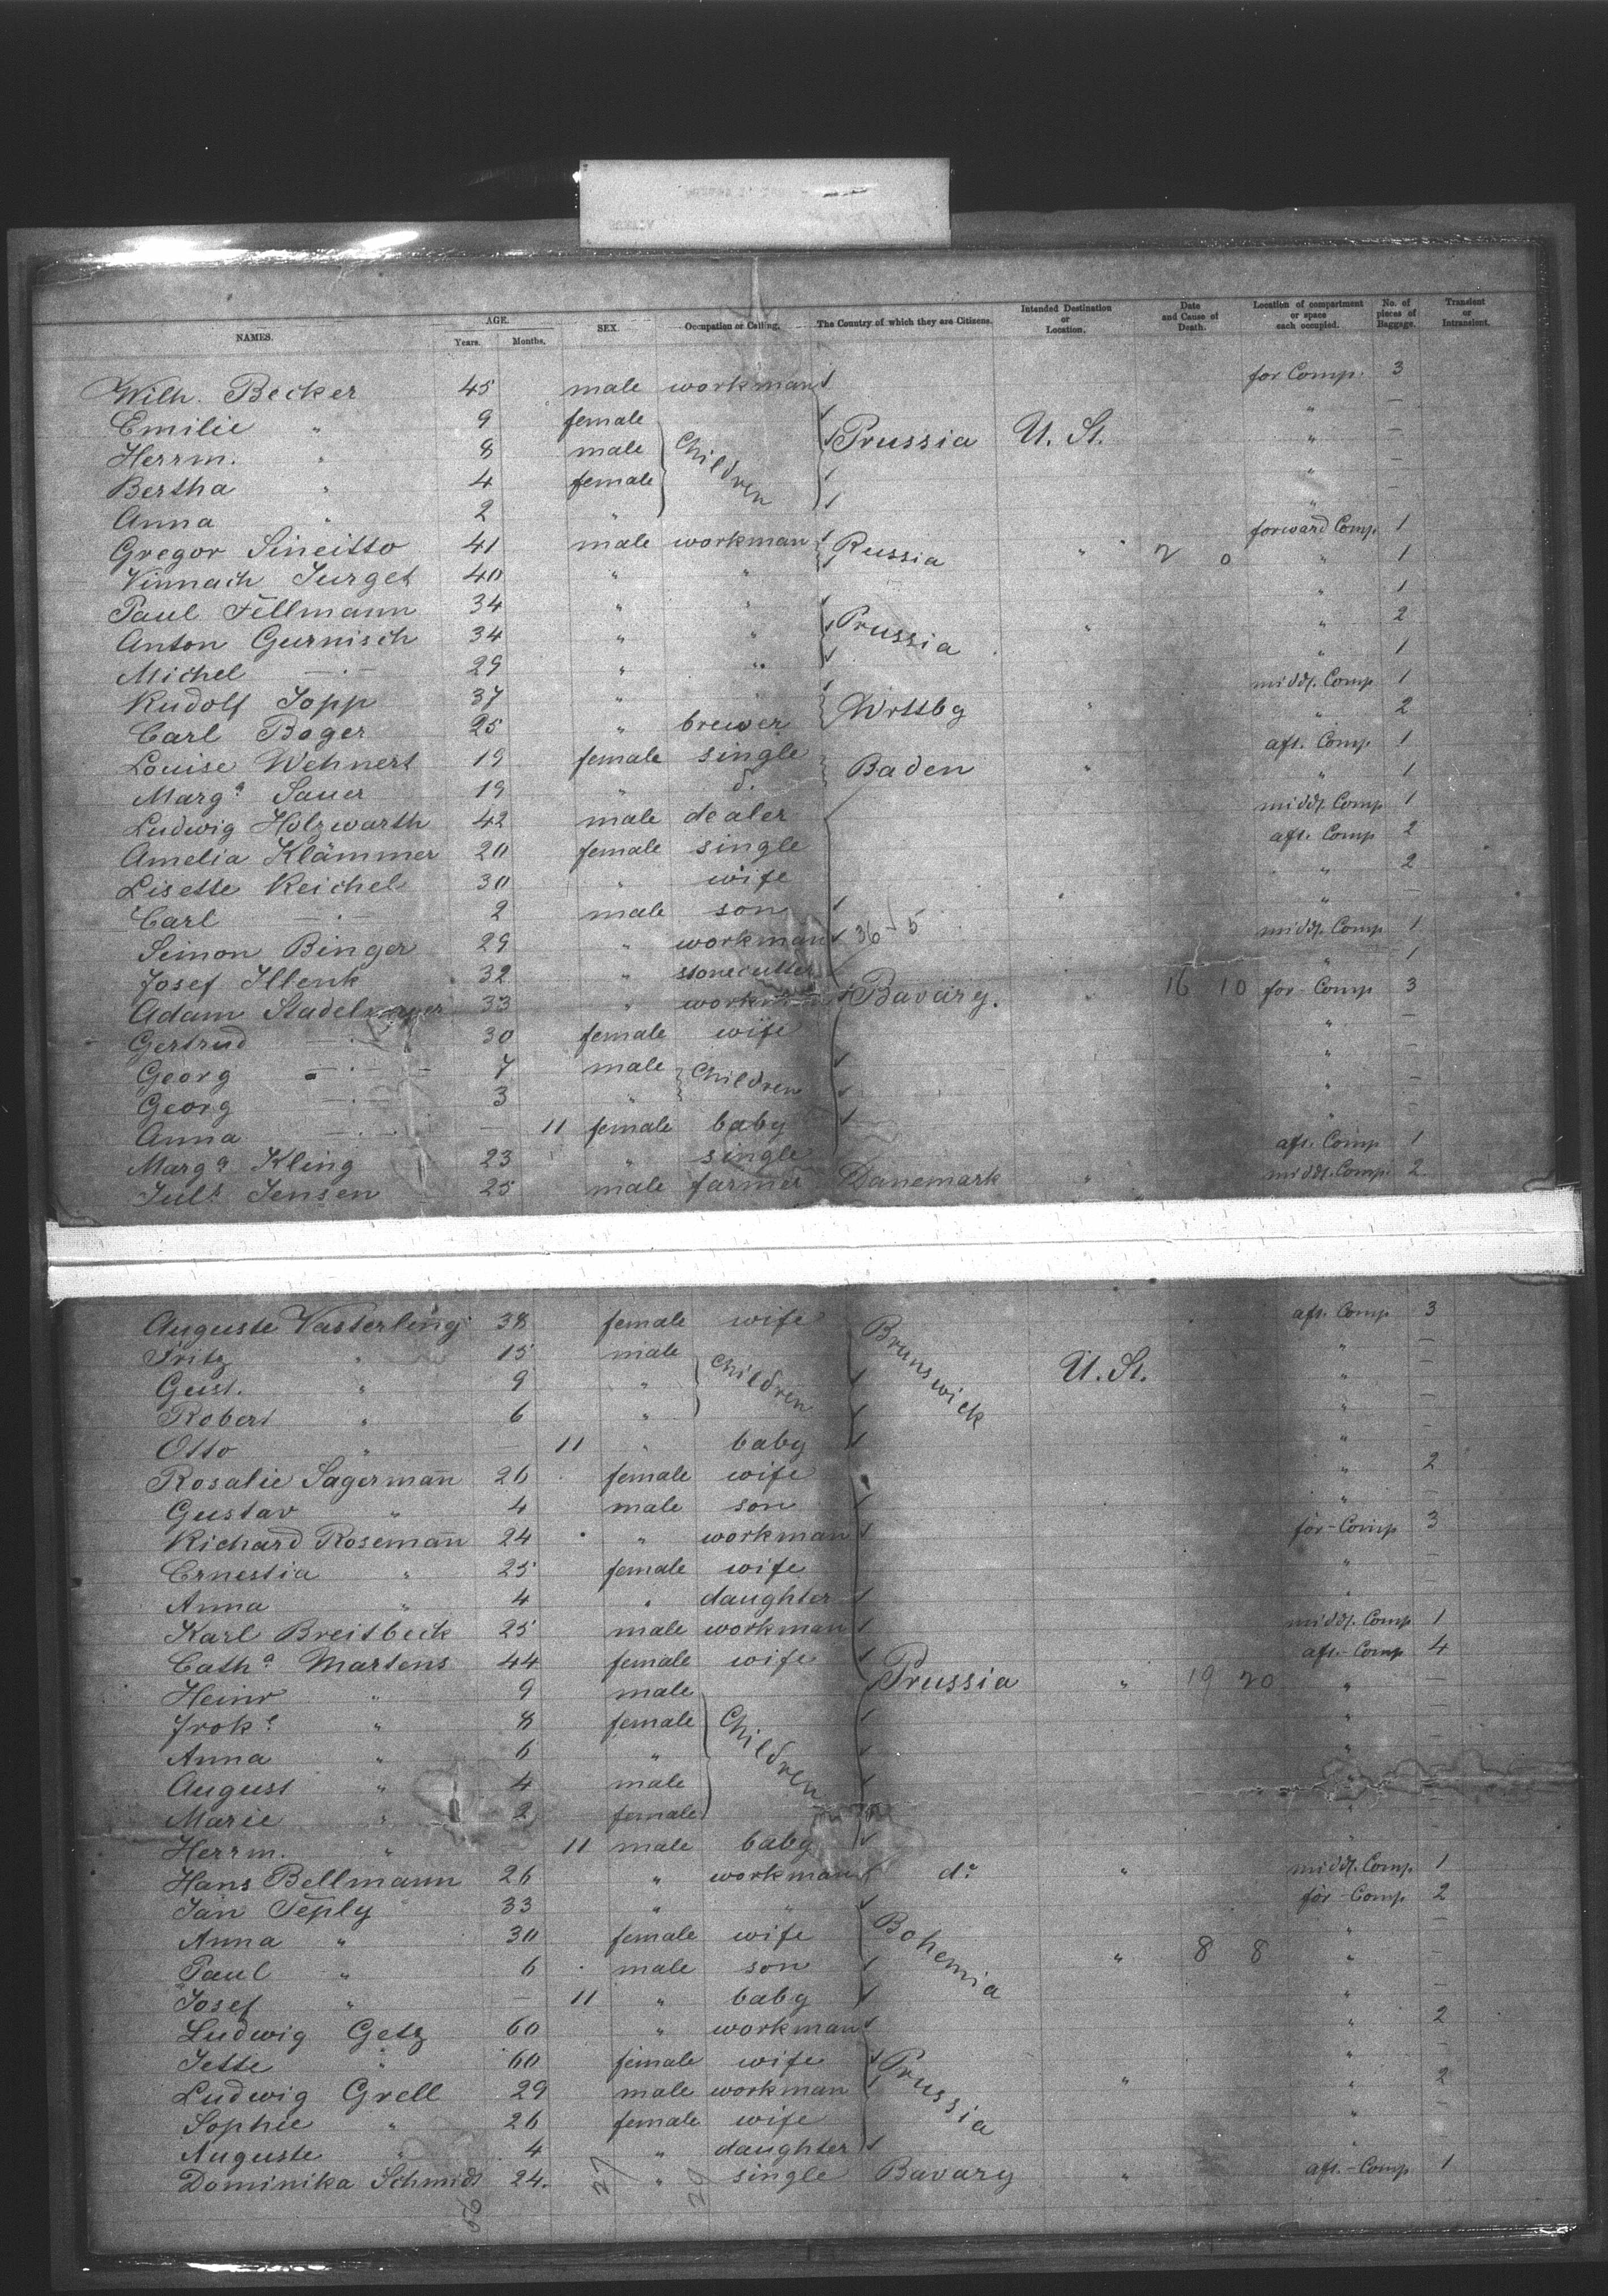 NAMES. AGE. Years. Months. SEX. Occupation or Calling. The Country of which they are Citizens. Intended Destination or Location. Date and Cause of Death. Location of compartment or space each occupied. No. of pieces of Baggage. Transient or Intransient.
Wilh. Becker 45 male workman for Comp. 3
Emilie " 9 female " —
Herrm. " 8 male Children Prussia U. St. " —
Bertha " 4 female " —
Anna " 2 " " —
Gregor Sineitto 41 male workman Russia " forward Comp. 1
Vinnach Jurget 40 " " 2 0 " 1
Paul Fellmann 34 " " " 1
Anton Gurnisch 34 " " Prussia " " 2
Michel —"— 29 " " " 1
Rudolf Jopp 37 " " middl. Comp 1
Carl Boger 25 " brewer Wrttbg " " 2
Louise Wehnert 19 female single aft. Comp 1
Marg.a Sauer 19 " d. Baden " " 1
Ludwig Holzwarth 42 male dealer middl. Comp 1
Amelia Klämmer 20 female single aft. Comp 2
Lisette Reichel 30 " wife " 2
Carl —"— 2 male son " " —
Seimon Binger 29 " workman 36-5 middl. Comp 1
Josef Illenk 32 " stonecutter " 1
Adam Stadelmayer 33 " workman Bavary. " 16 10 for-Comp 3
Gertrud —"— 30 female wife " —
Georg —"— 7 male Children " —
Georg —"— 3 " " —
Anna —"— — 11 female baby " —
Marg.a Kling 23 " single aft. Comp 1
Jul.s Jensen 25 male farmer Danemark " middl. Comp. 2
Auguste Vasterling 38 female wife Brunswick aft. Comp 3
Fritz " 15 male Children " —
Gust. " 9 " U. St. " —
Robert " 6 " " —
Otto " — 11 " baby " —
Rosalie Sagermañ 26 female wife " 2
Gustav " 4 male son " —
Richard Rosemañ 24 " workman for-Comp 3
Ernestia " 25 female wife " —
Anna " 4 " daughter " —
Karl Breitbeck 25 male workman middl. Comp 1
Cath.a Martens 44 female wife aft-Comp 4
Heinr " 9 male Prussia " 19 20 " —
Frok.e " 8 female Children " —
Anna " 6 " " —
August " 4 male " —
Marie " 2 female " —
Herrm. " — 11 male baby " —
Hans Bellmann 26 " workman do " middl. Comp. 1
Jan Teply 33 " " for-Comp 2
Anna " 30 female wife Bohemia " —
Paul " 6 male son " 8 8 " —
Josef " — 11 " baby " —
Ludwig Getz 60 " workman " 2
Jette " 60 female wife " —
Ludwig Grell 29 male workman Prussia " " 2
Sophie " 26 female wife " —
Auguste " 4 " daughter " —
Dominika Schmidt 24. " single Bavary " aft.-Comp 1
56 27 29